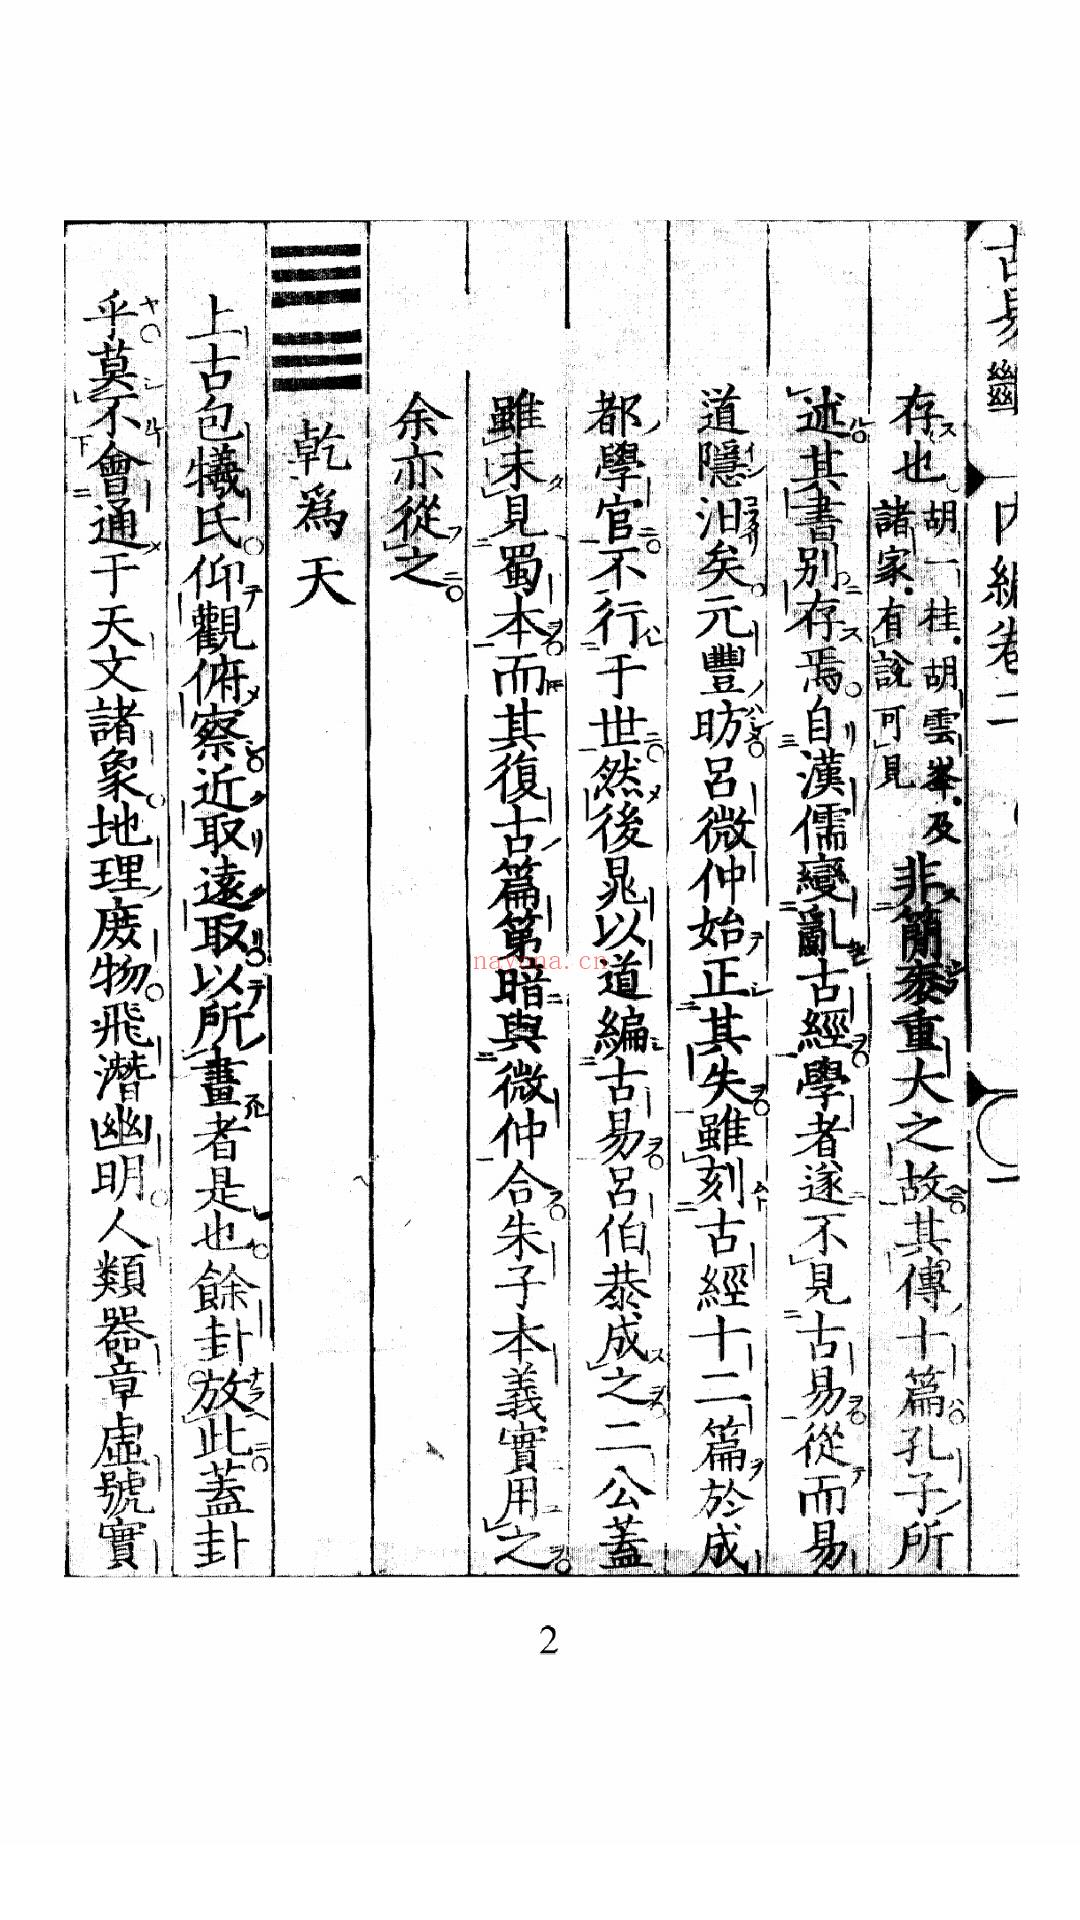 古易
內編卷二
存也胡一桂胡雲峯及諸家有說可見非簡袠重大之故其傳十篇孔子所
述其書別存焉自漢儒變亂古經學者遂不見古易從而易
道隱汨矣元豐昉呂微仲始正其失雖刻古經十二篇於成
都學官不行于世然後晁以道編古易呂伯恭成之二公蓋
雖未見蜀本而其復古篇第暗與微仲合朱子本義實用之
余亦從之
乾爲天
上古包犧氏仰觀俯察近取遠取以所畫者是也餘卦放此蓋卦
乎莫不會通于天文諸象地理庶物飛潛幽明人類器章虛號實
nayona.cn
2